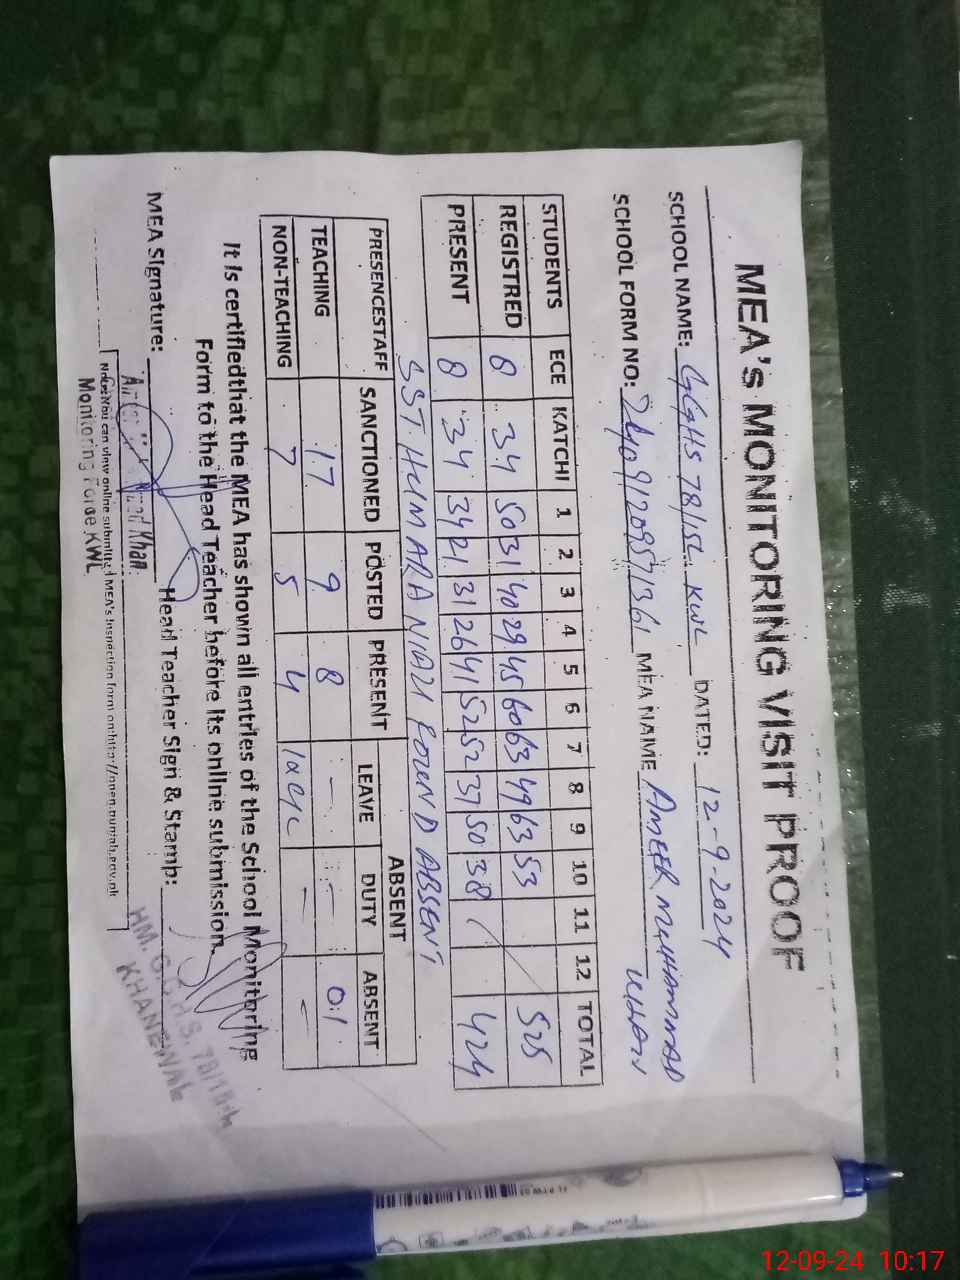 MEA'S MONITORING VISIT PROOF
SCHOOL NAME: GGHS 78/15L KWL DATED: 12-9-2024
SCHOOL FORM NO: MEA NAME AMEER MUHAMMAD
KHAN
STUDENTS ECE KATCHI 1 2 3 4 5 6 7 8 9 10 11 12 TOTAL
REGISTRED 8 34 50 31 40 29 45 60 63 49 63 53 525
PRESENT 8 34 34 21 31 26 41 52 52 37 50 38 424
SST HUMARA NIAZI FOUND ABSENT
PRESENCESTAFF SANCTIONED POSTED PRESENT ABSENT
LEAVE DUTY ABSENT
TEACHING 17 9 8 - - 01
NON-TEACHING 7 5 4 -
It is certifiedthat the MEA has shown all entries of the School Monitoring
Form to the Head Teacher before its online submission.
MEA Signature: Head Teacher Sign & Stamp:
Khan
Note: You can view online submitted MEA's Inspection form on:
Monitoring Force KWL
HM. G.G.H.S. 78/15-L
KHANEWAL
12-09-24 10:17